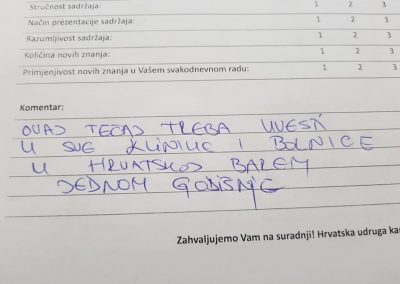 Stručnost sadržaja: 1 2 3
Način prezentacije sadržaja: 1 2 3
Razumljivost sadržaja: 1 2 3
Količina novih znanja: 1 2 3
Primjenjivost novih znanja u Vašem svakodnevnom radu: 1 2 3
Komentar:
OVAJ TEČAJ TREBA UVESTI
U SVE KLINIKE I BOLNICE
U HRVATSKOJ BAREM
JEDNOM GODIŠNJE
Zahvaljujemo Vam na suradnji! Hrvatska udruga